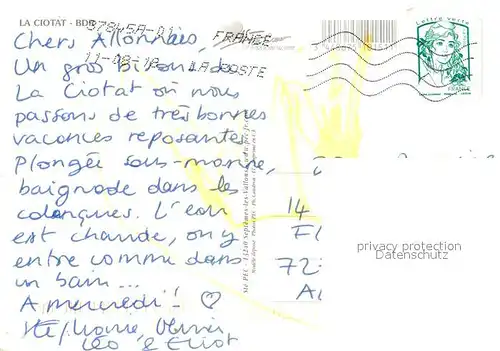 LA CIOTAT - BDR
37845A-01
11-08-18
FRANCE
LA POSTE
Lettre verte
FRANCE
Chers Allonnais,
Un gros bisou de
La Ciotat où nous
passons de très bonnes
vacances reposantes
Plongée sous-marine,
baignade dans les
calanques. L'eau
est chaude, on y
entre comme dans
un bain...
A mercredi! ♡
Stéphanie, Olivier
Léo & Eliot
14
72
privacy protection
Datenschutz